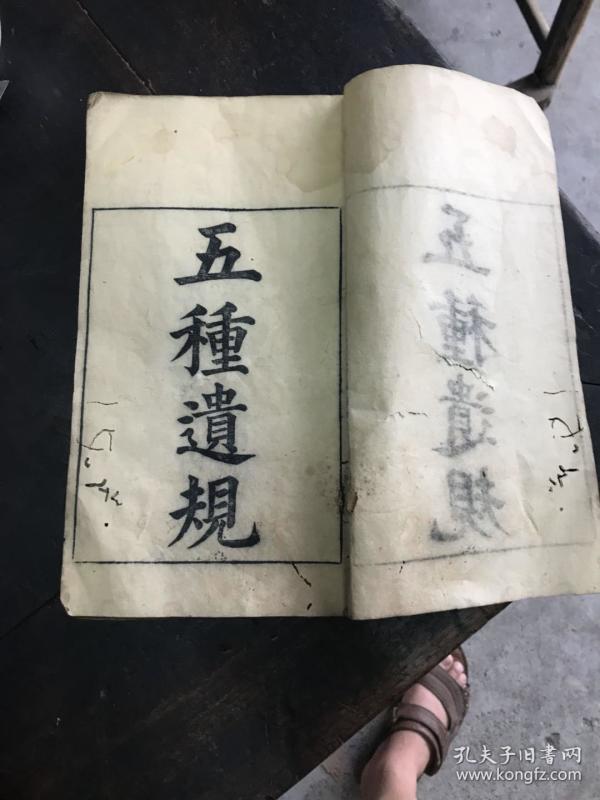 五種遺規
五種遺規
孔夫子旧書网
www.kongfz.com